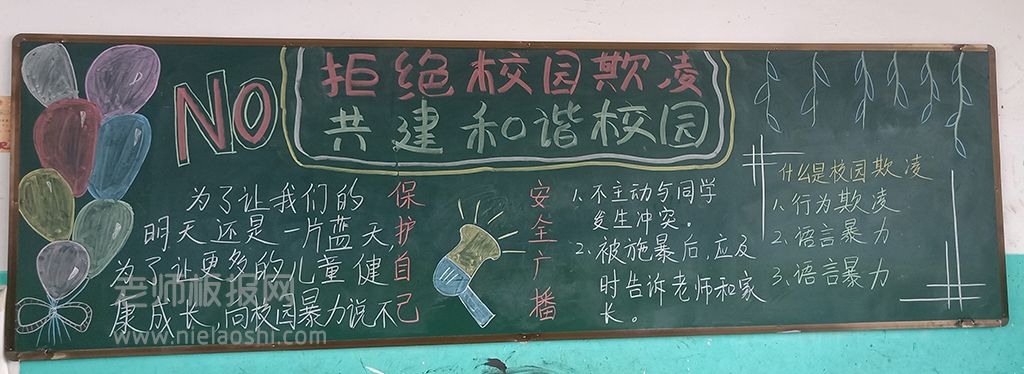 NO
拒绝校园欺凌
共建和谐校园
为了让我们的
明天还是一片蓝天,
为了让更多的儿童健
康成长 向校园暴力说不
保护自己
安全广播
1、不主动与同学
发生冲突。
2、被施暴后,应及
时告诉老师和家
长。
什么是校园欺凌
1、行为欺凌
2、语言暴力
3、语言暴力
老师板报网
www.nielaoshi.com